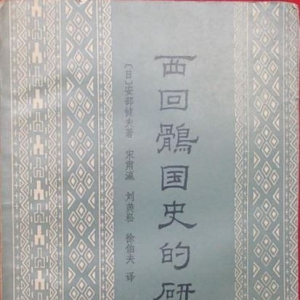 西回鹘国史的研
〔日〕安部健夫著
宋肃瀛 刘美崧 徐伯夫 译